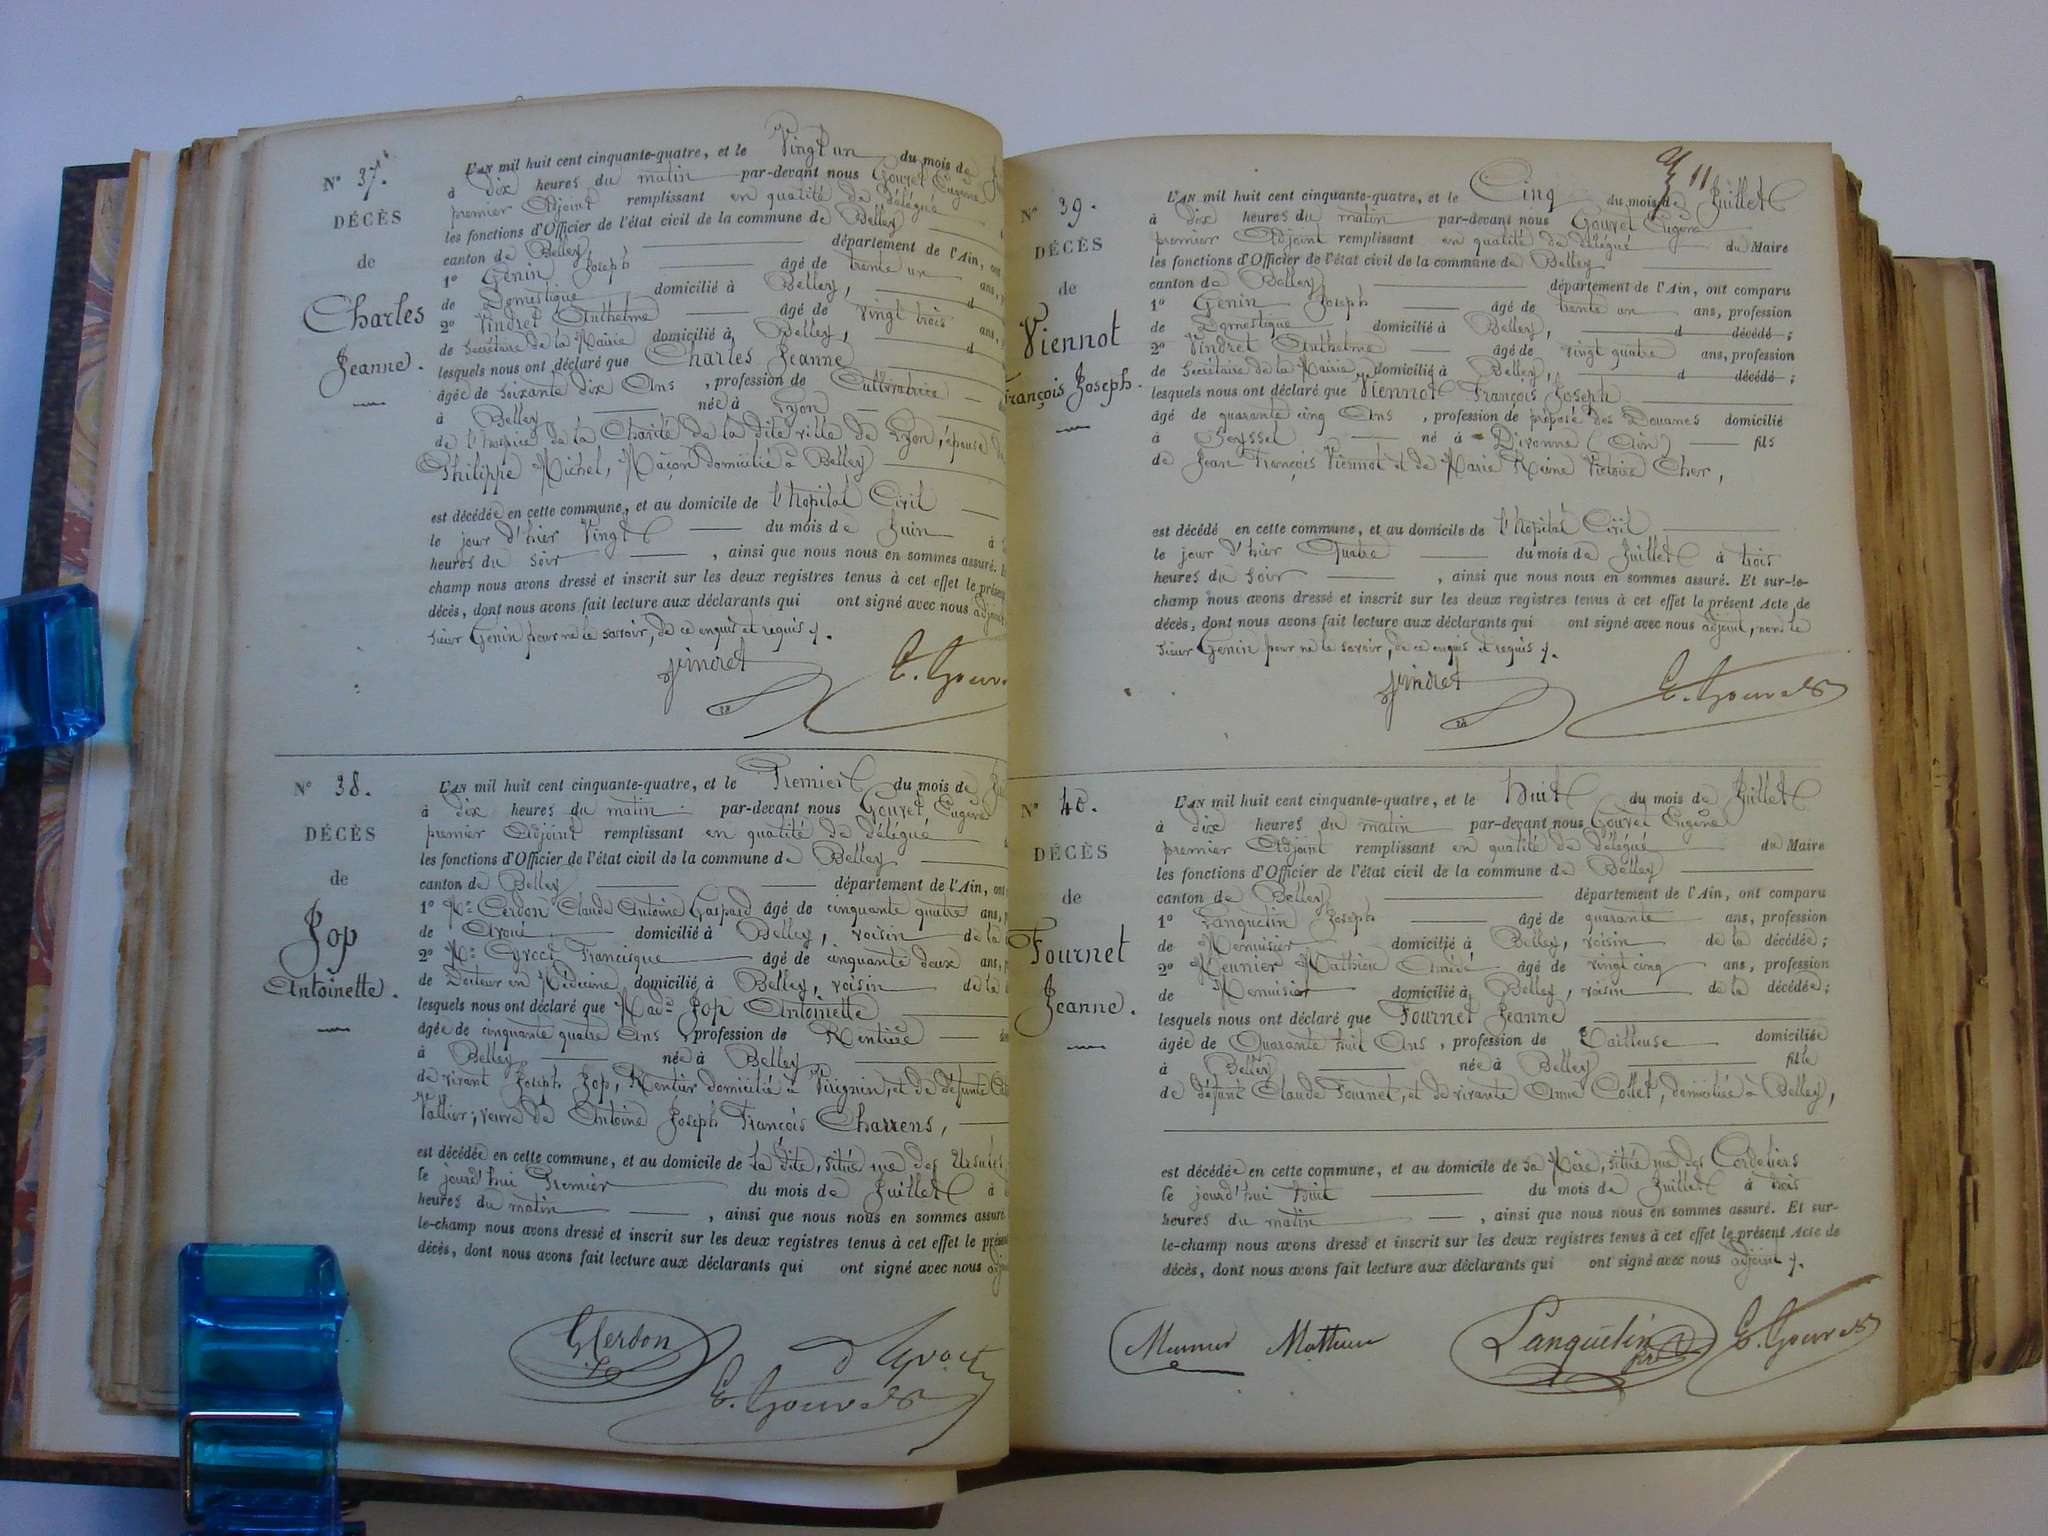 N° 37.
DÉCÈS
de
Charles
Jeanne.
L'AN mil huit cent cinquante-quatre, et le Vingt un du mois de
à dix heures du matin par-devant nous Gouvet Eugène
premier Adjoint remplissant en qualité de délégué
les fonctions d'Officier de l'état civil de la commune de Belley
canton de Belley, département de l'Ain, ont
1° Genin Joseph âgé de trente un ans,
de Domestique domicilié à Belley, d
2° Vindret Anthelme âgé de vingt trois ans,
de Secrétaire de la Mairie domicilié à Belley, d
lesquels nous ont déclaré que Charles Jeanne
âgée de soixante dix Ans, profession de Cultivatrice
à Belley née à Lyon
de l'hospice de la Charité de la dite ville de Lyon, épouse de
Philippe Michel, Maçon domicilié à Belley
est décédée en cette commune, et au domicile de l'hopital Civil
le jour d'hier Vingt du mois de Juin à
heures du soir, ainsi que nous nous en sommes assuré.
champ nous avons dressé et inscrit sur les deux registres tenus à cet effet le présent
décès, dont nous avons fait lecture aux déclarants qui ont signé avec nous adjoint
sieur Genin pour ne le savoir, de ce enquis et requis.
Vindret E. Gouvet
N° 38.
DÉCÈS
de
Jop
Antoinette.
L'AN mil huit cent cinquante-quatre, et le Premier du mois de
à dix heures du matin par-devant nous Gouvet Eugène
premier Adjoint remplissant en qualité de délégué
les fonctions d'Officier de l'état civil de la commune de Belley
canton de Belley département de l'Ain, ont
1° Mr Cerdon Claude Antoine Gaspard âgé de cinquante quatre ans,
de Avoué domicilié à Belley, voisin de la
2° Mr Cyvoct Francisque âgé de cinquante deux ans,
de Docteur en Médecine domicilié à Belley, voisin de la
lesquels nous ont déclaré que Made Jop Antoinette
âgée de cinquante quatre Ans, profession de Rentière
à Belley née à Belley
de vivant Joseph Jop, Rentier domicilié à Virignin, et de défunte
Vallier; veuve de Antoine Joseph François Charrens,
est décédée en cette commune, et au domicile de la dite, situé rue des Ursules
le jourd'hui Premier du mois de Juillet à
heures du matin, ainsi que nous nous en sommes assuré.
le-champ nous avons dressé et inscrit sur les deux registres tenus à cet effet le présent
décès, dont nous avons fait lecture aux déclarants qui ont signé avec nous
Cerdon d Cyvoct
E. Gouvet
11
N° 39.
DÉCÈS
de
Viennot
François Joseph.
L'AN mil huit cent cinquante-quatre, et le Cinq du mois de Juillet
à dix heures du matin par-devant nous Gouvet Eugène
premier Adjoint remplissant en qualité de délégué du Maire
les fonctions d'Officier de l'état civil de la commune de Belley
canton de Belley, département de l'Ain, ont comparu
1° Genin Joseph âgé de trente un ans, profession
de Domestique domicilié à Belley, d décédé;
2° Vindret Anthelme âgé de vingt quatre ans, profession
de Secrétaire de la Mairie, domicilié à Belley, d décédé;
lesquels nous ont déclaré que Viennot François Joseph
âgé de quarante cinq Ans, profession de préposé des Douanes domicilié
à Seyssel né à Divonne (Ain) fils
de Jean François Viennot et de Marie Reine Victoire Cher,
est décédé en cette commune, et au domicile de l'hopital Civil
le jour d'hier Quatre du mois de Juillet à trois
heures du soir, ainsi que nous nous en sommes assuré. Et sur-le-
champ nous avons dressé et inscrit sur les deux registres tenus à cet effet le présent Acte de
décès, dont nous avons fait lecture aux déclarants qui ont signé avec nous adjoint, non le
sieur Genin pour ne le savoir, de ce enquis et requis.
Vindret E. Gouvet
N° 40.
DÉCÈS
de
Fournet
Jeanne.
L'AN mil huit cent cinquante-quatre, et le huit du mois de Juillet
à dix heures du matin par-devant nous Gouvet Eugène
premier Adjoint remplissant en qualité de délégué du Maire
les fonctions d'Officier de l'état civil de la commune de Belley
canton de Belley département de l'Ain, ont comparu
1° Lanquetin Joseph âgé de quarante ans, profession
de Menuisier domicilié à Belley, voisin de la décédée;
2° Meunier Mathieu Amédé âgé de vingt cinq ans, profession
de Menuisier domicilié à Belley, voisin de la décédée;
lesquels nous ont déclaré que Fournet Jeanne
âgée de Quarante huit Ans, profession de Tailleuse domiciliée
à Belley née à Belley fille
de défunt Claude Fournet, et de vivante Anne Collet, domiciliée à Belley,
est décédée en cette commune, et au domicile de sa Mère, situé rue des Cordeliers
le jourd'hui huit du mois de Juillet à trois
heures du matin, ainsi que nous nous en sommes assuré. Et sur-
le-champ nous avons dressé et inscrit sur les deux registres tenus à cet effet le présent Acte de
décès, dont nous avons fait lecture aux déclarants qui ont signé avec nous adjoint.
Meunier Mathieu Lanquetin E. Gouvet